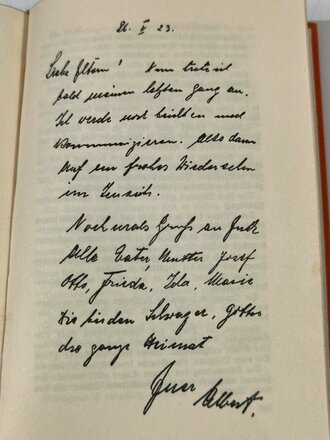 26. V 23.
Liebe Eltern! Nun trete ich
bald meinen letzten Gang an.
Ich werde noch beichten und
Kommunizieren. Also dann
Auf ein frohes Wiedersehen
im Jenseits.
Nochmals Gruß an Euch
Alle Vater, Mutter Josef
Otto, Frieda, Ida, Marie
Die beiden Schwager,
die ganze Heimat
Euer Albert.